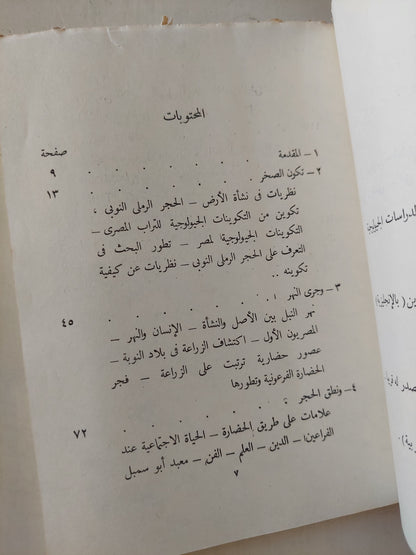 المحتويات
صفحة
١ – المقدمة . . . . . . ٩
٢ – تكون الصخر . . . . . . ١٣
نظريات فى نشأة الأرض – الحجر الرملى النوبى ،
تكوين من التكوينات الجيولوجية للتراب المصرى –
التكوينات الجيولوجية لمصر – تطور البحث فى
التعرف على الحجر الرملى النوبى – نظريات عن كيفية
تكوينه ..
٣ – وجرى النهر . . . . . . ٤٥
نهر النيل بين الأصل والنشأة – الإنسان والنهر –
المصريون الأول – اكتشاف الزراعة فى بلاد النوبة –
عصور حضارية ترتبت على الزراعة – فجر
الحضارة الفرعونية وتطورها
٤ – ونطق الحجر . . . . . . ٧٢
علامات على طريق الحضارة – الحياة الاجتماعية عند
الفراعين – الدين – العلم – الفن – معبد أبو سمبل
٧
الدراسات
( بالإنجليزية )
صدر له